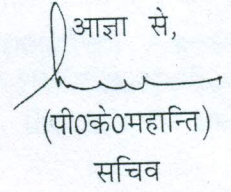 आज्ञा से,
(पी०के०महान्ति)
सचिव